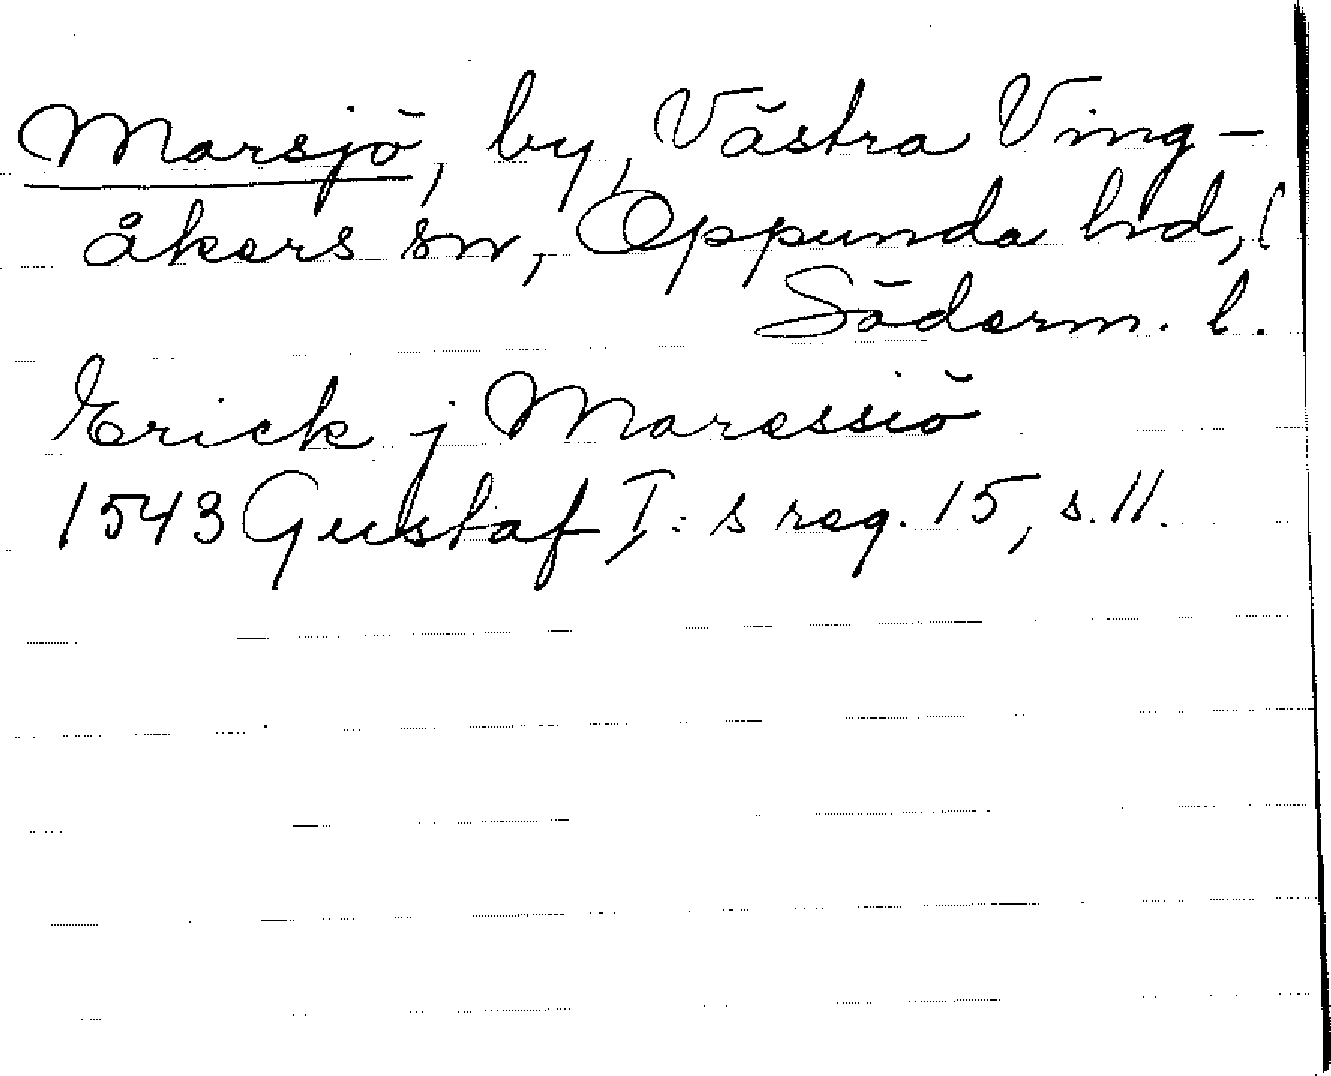 Marsjö, by, Västra Ving-
åkers sn, Oppunda hd, (
Söderm. l.
Erick j Maressiö
1543 Gustaf I: s reg. 15, s. 11.